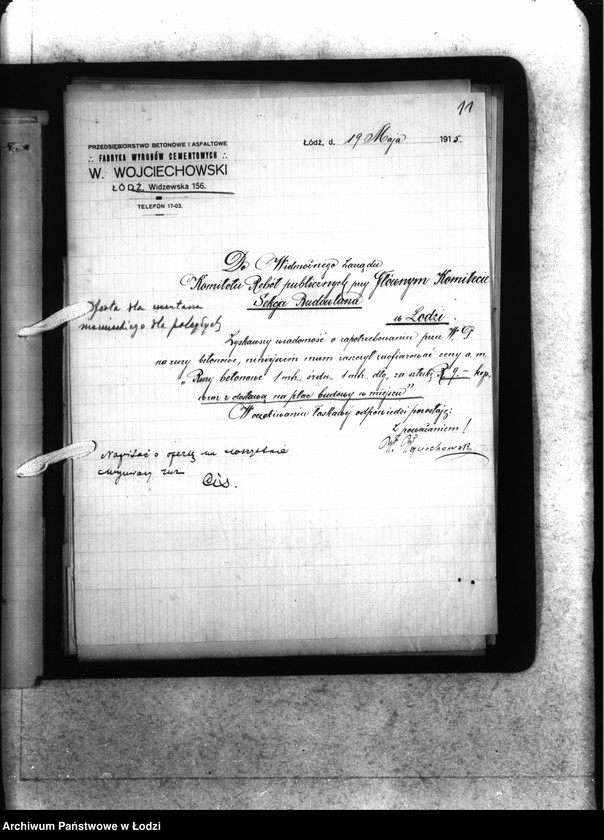 11
PRZEDSIĘBIORSTWO BETONOWE I ASFALTOWE
FABRYKA WYROBÓW CEMENTOWYCH
W. WOJCIECHOWSKI
ŁÓDŹ, Widzewska 156.
TELEFON 17-03.
Łódź, d. 19 Maja 1915.
Do Wielmożnego Zarządu
Komitetu Robót publicznych przy Głównym Komitecie
Sekcja Budowlana
w Łodzi.
Oferta dla cmentarza
dla poległych
Zyskawszy wiadomość o zapotrzebowaniu przez W. P.
na rury betonowe, niniejszem mam zaszczyt zaofiarować ceny n. m.
"Rury betonowe 1 mb. średn. 1 mb. dłg. za sztukę R 9.– kop.
wraz z dostawą na plac budowy w miejscu"
W oczekiwaniu łaskawej odpowiedzi pozostaję
Z poważaniem!
W. Wojciechowski
Napisać o ofertę na
rur
Archiwum Państwowe w Łodzi